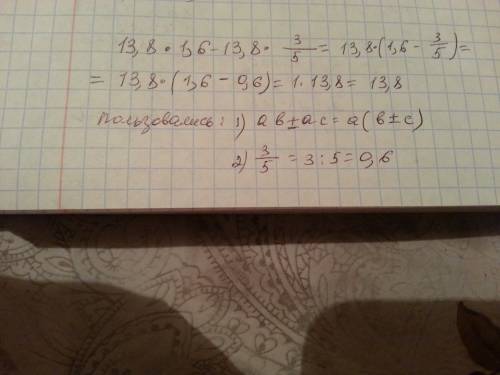 13,8 · 1,6 - 13,8 · 3/5 = 13,8 · (1,6 - 3/5) =
= 13,8 · (1,6 - 0,6) = 1 · 13,8 = 13,8
пользовались: 1) ab ± ac = a(b ± c)
2) 3/5 = 3 : 5 = 0,6